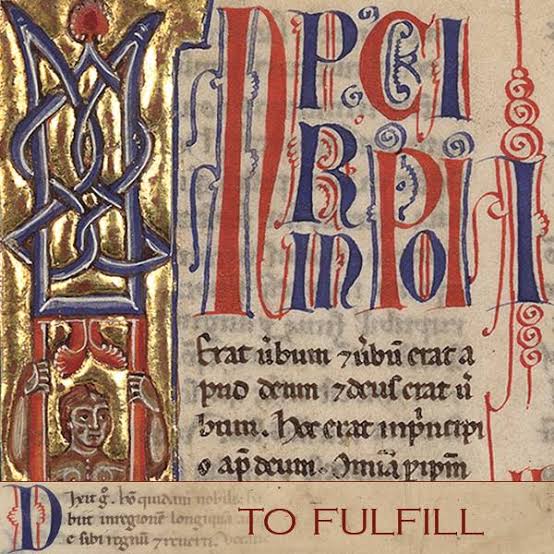 Erat ūbum ⁊ ūbū erat a
pud deum ⁊ deuſ erat ū
bum. Hoc erat inpͥncipi
o ap̄ deum. Omīa p ipm
Dixit g̊. hō quidam nobiliſ
biit inregionē longiqua
c sibi regnū ⁊ reverti.
TO FULFILL